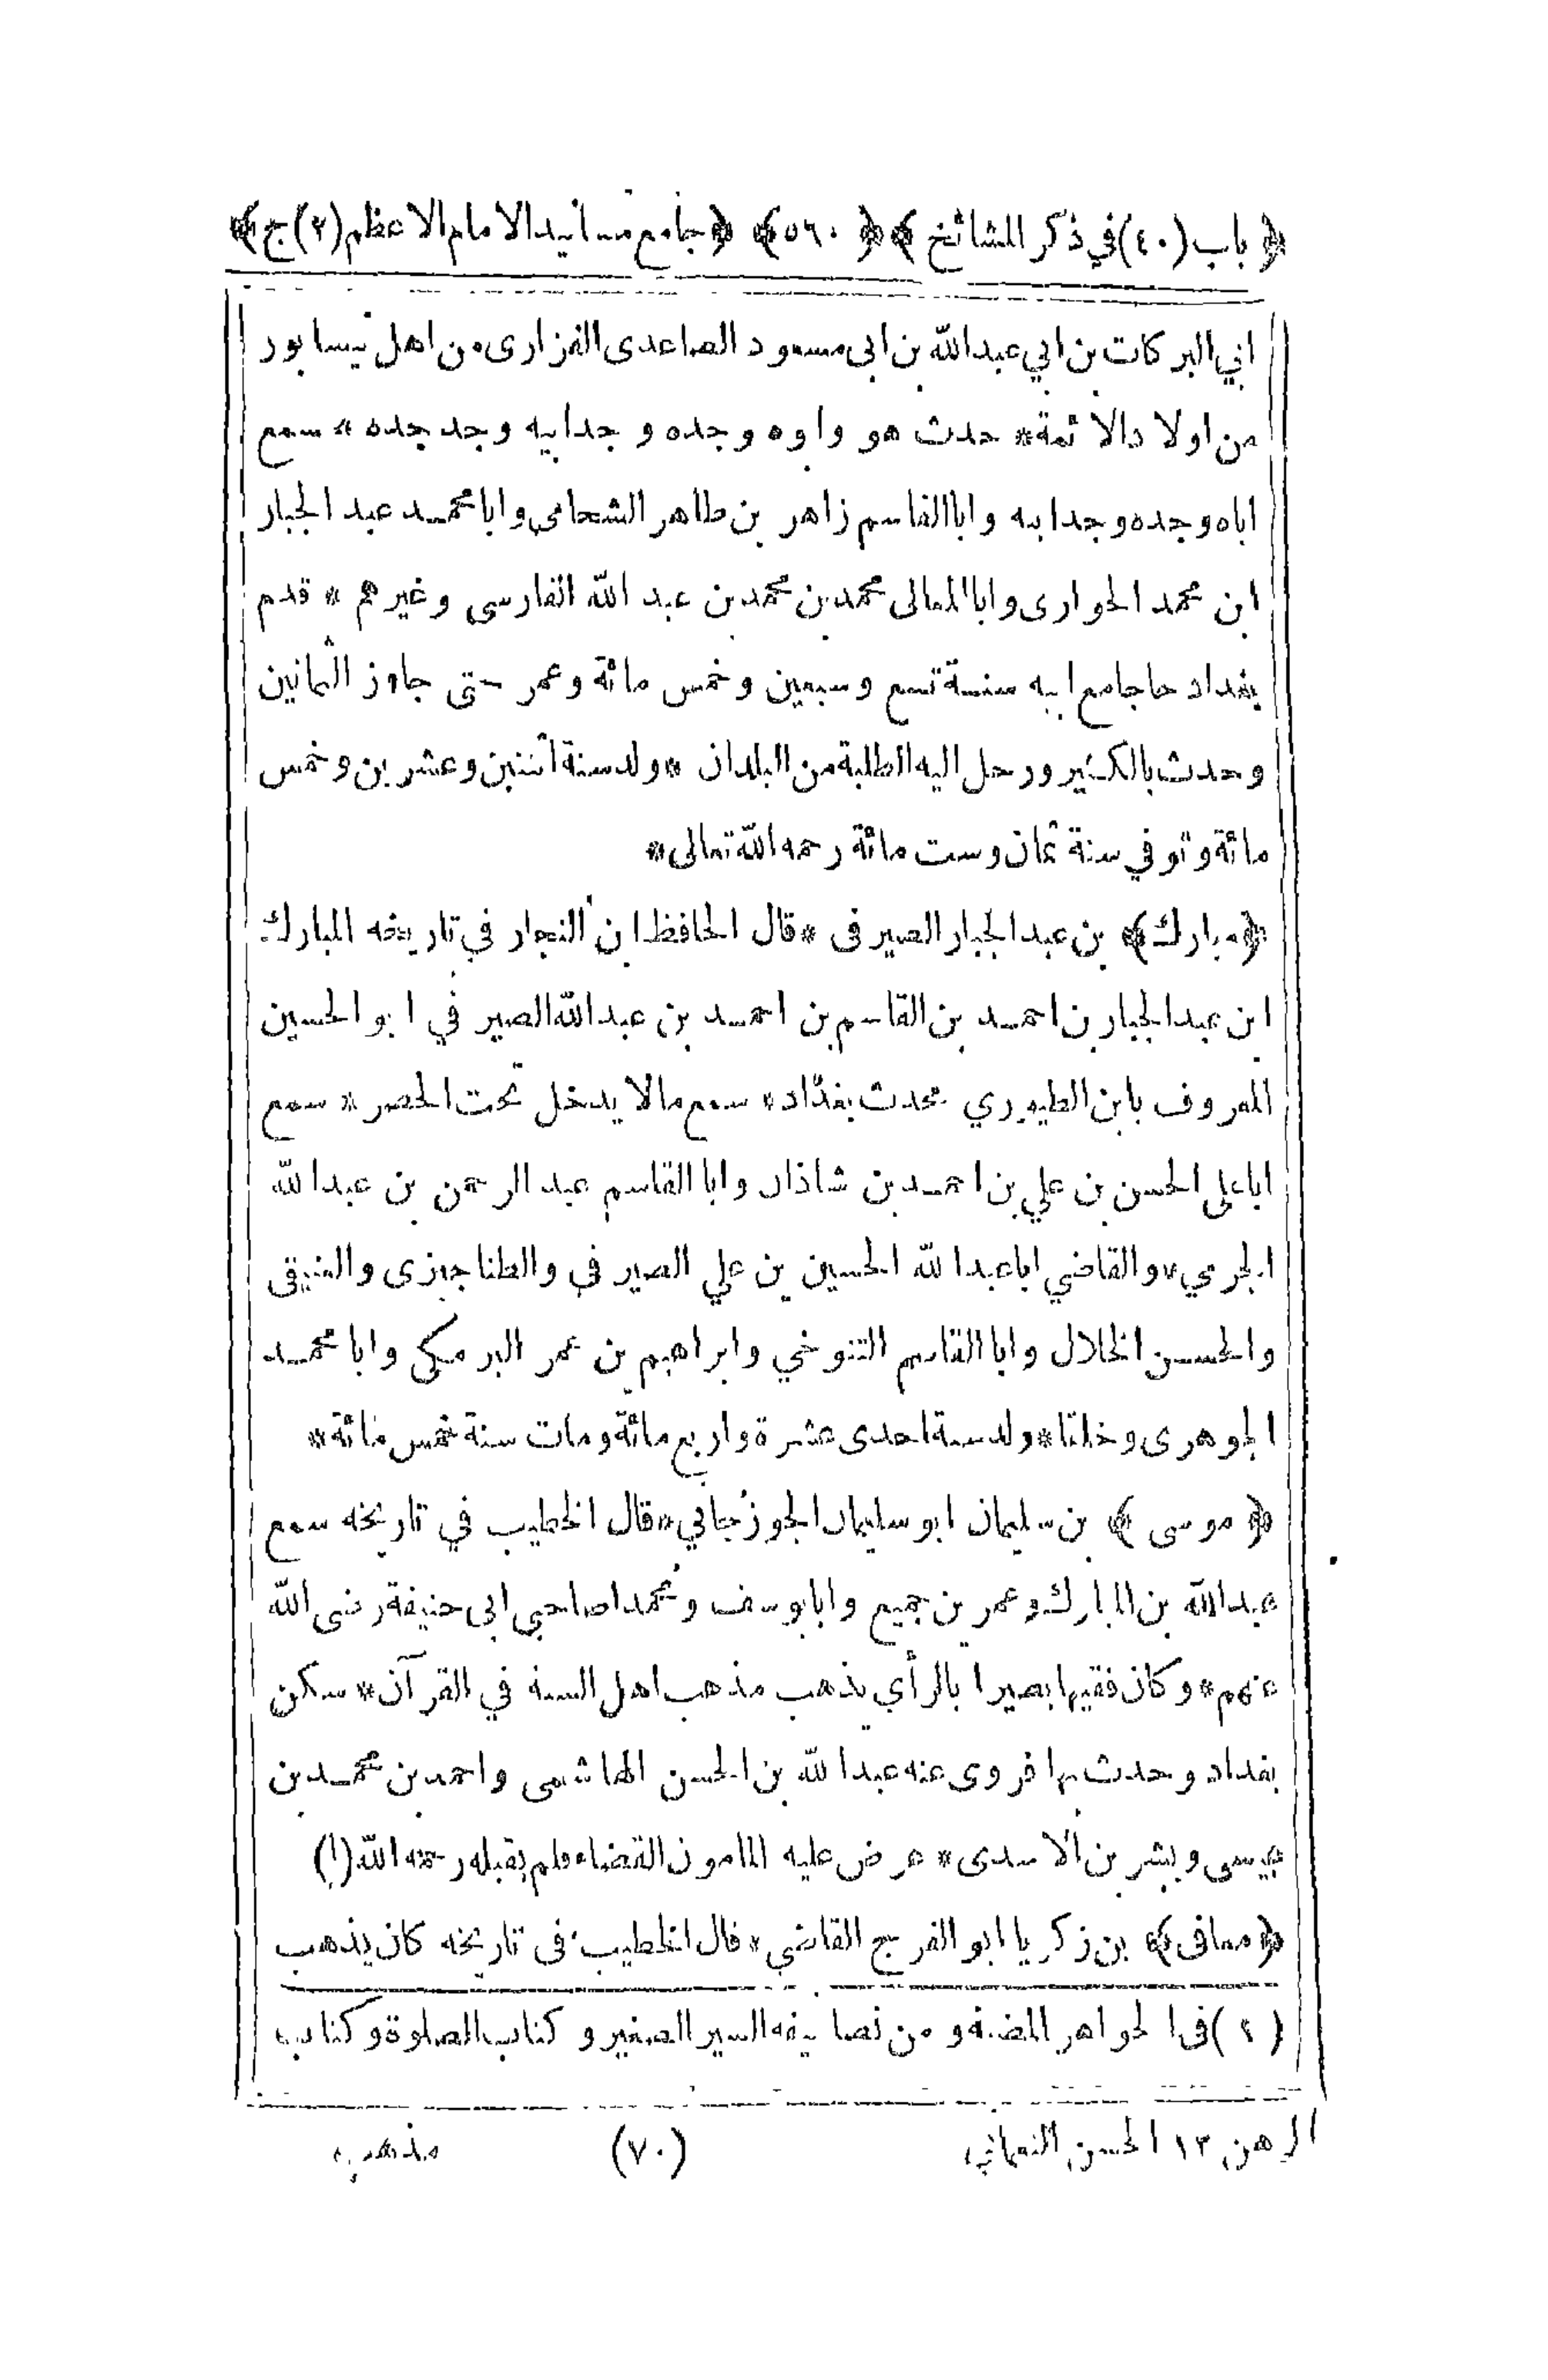 ﴿ باب (٤٠) في ذكر المشائخ ﴾ ﴿ ٥٦٠ ﴾ ﴿ جامع مسانيد الامام الاعظم (٢) ج ﴾
ابي البركات بن ابي عبدالله بن ابى مسعود الصاعدى الفزارى من اهل نيسابور
من اولاد الائمة * حدث هو وابوه وجده وجدابيه وجد جده * سمع
اباه وجده وجدابيه واباالقاسم زاهر بن طاهر الشحامى وابامحمد عبد الجبار
ابن محمد الحوارى واباالمعالى محمد بن محمد بن عبد الله الفارسى وغيرهم * قدم
بغداد حاجامع ابيه سنة تسع وسبعين وخمس مائة وعمر حتى جاوز الثمانين
وحدث بالكثير ورحل اليه الطلبة من البلدان * ولد سنة اثنتين وعشرين وخمس
مائة وتوفي سنة ثمان وست مائة رحمه الله تعالى *
﴿ مبارك ﴾ بن عبدالجبار الصيرفى * قال الحافظ ابن النجار في تاريخه المبارك
ابن عبدالجبار بن احمد بن القاسم بن احمد بن عبدالله الصيرفي ابوالحسين
المعروف بابن الطيوري محدث بغداد * سمع مالا يدخل تحت الحصر * سمع
اباعلى الحسن بن علي بن احمد بن شاذان واباالقاسم عبدالرحمن بن عبدالله
الجرمي * والقاضي اباعبدالله الحسين بن علي الصيرفي والطناجيزى والعتيقى
والحسن الخلال واباالقاسم التنوخي وابراهيم بن عمر البرمكى وابامحمد
الجوهرى وخلقا * ولد سنة احدى عشرة واربع مائة ومات سنة خمس مائة *
﴿ موسى ﴾ بن سليمان ابو سليمان الجوزجاني * قال الخطيب في تاريخه سمع
عبدالله بن المبارك وعمر بن جميع وابايوسف ومحمداصاحبي ابى حنيفة رضى الله
عنهم * وكان فقيها بصيرا بالرأي يذهب مذهب اهل السنه في القرآن * سكن
بغداد وحدث بها فروى عنه عبدالله بن الحسن الهاشمى واحمد بن محمد بن
عيسى وبشر بن الاسدى * عرض عليه المامون القضاء فلم يقبله رحمه الله (١)
﴿ معافى ﴾ بن زكريا ابو الفرج القاضي * قال الخطيب فى تاريخه كان يذهب
(١) فى الجواهر المضيه ومن تصانيفه السير الصغير وكتاب الصلوة وكتاب
الرهن ١٢ الحسن النعمانى (٧٠) مذهب